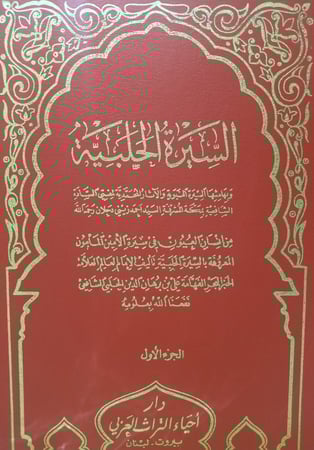 السيرة الحلبية
وبهامشها السيرة النبوية والآثار المحمدية لمفتي السادة
الشافعية بمكة المشرفة السيد أحمد زيني دحلان رحمه الله
من إنسان العيون في سيرة الأمين المأمون
المعروفة بالسيرة الحلبية تأليف الإمام العالم العلامة
الحبر البحر الفهامة علي بن برهان الدين الحلبي الشافعي
نفعنا الله بعلومه
الجزء الأول
دار
أحياء التراث العربي
بيروت - لبنان